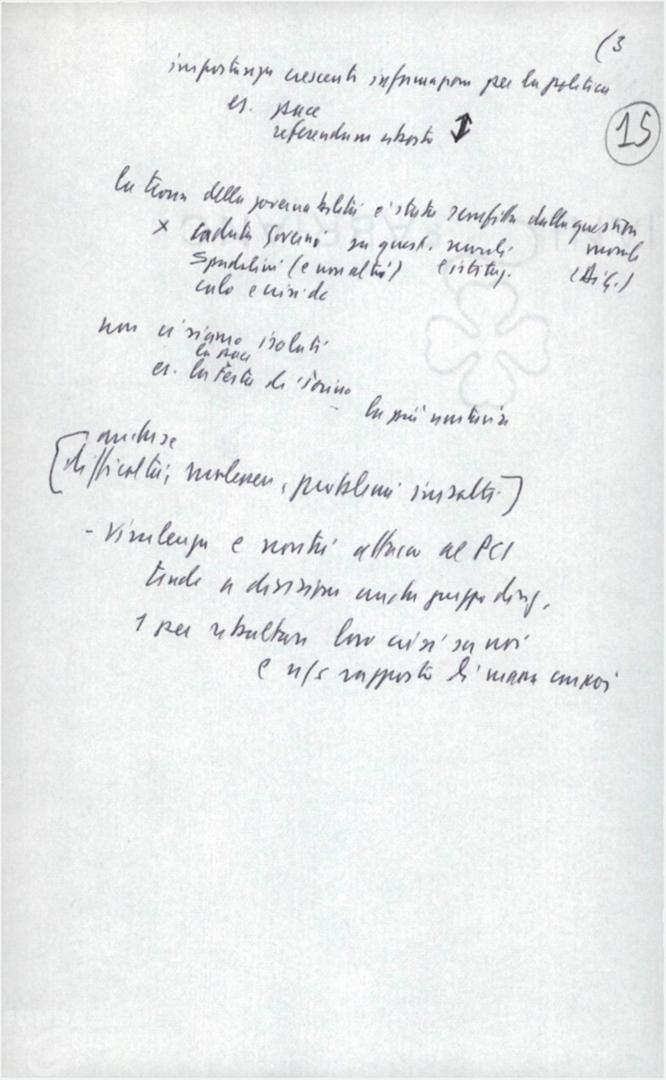 (3
importanza crescente informazione per la politica
es. pace
referendum aborto ↕
15
la teoria della governabilità è stata sconfitta dalla questione morale
x caduta governi su quest. morale
Spadolini (e non altri) e istituz. (BiG.)
calo e crisi dc
non ci siamo isolati
la pace
es. la Festa di Torino
la più
anche se
[difficoltà, malessere, problemi irrisolti]
- Virulenza e novità attacco al PCI
tende a divisione anche gruppo dirig.
1 per ribaltare loro crisi su noi
e n/s rapporto di massa